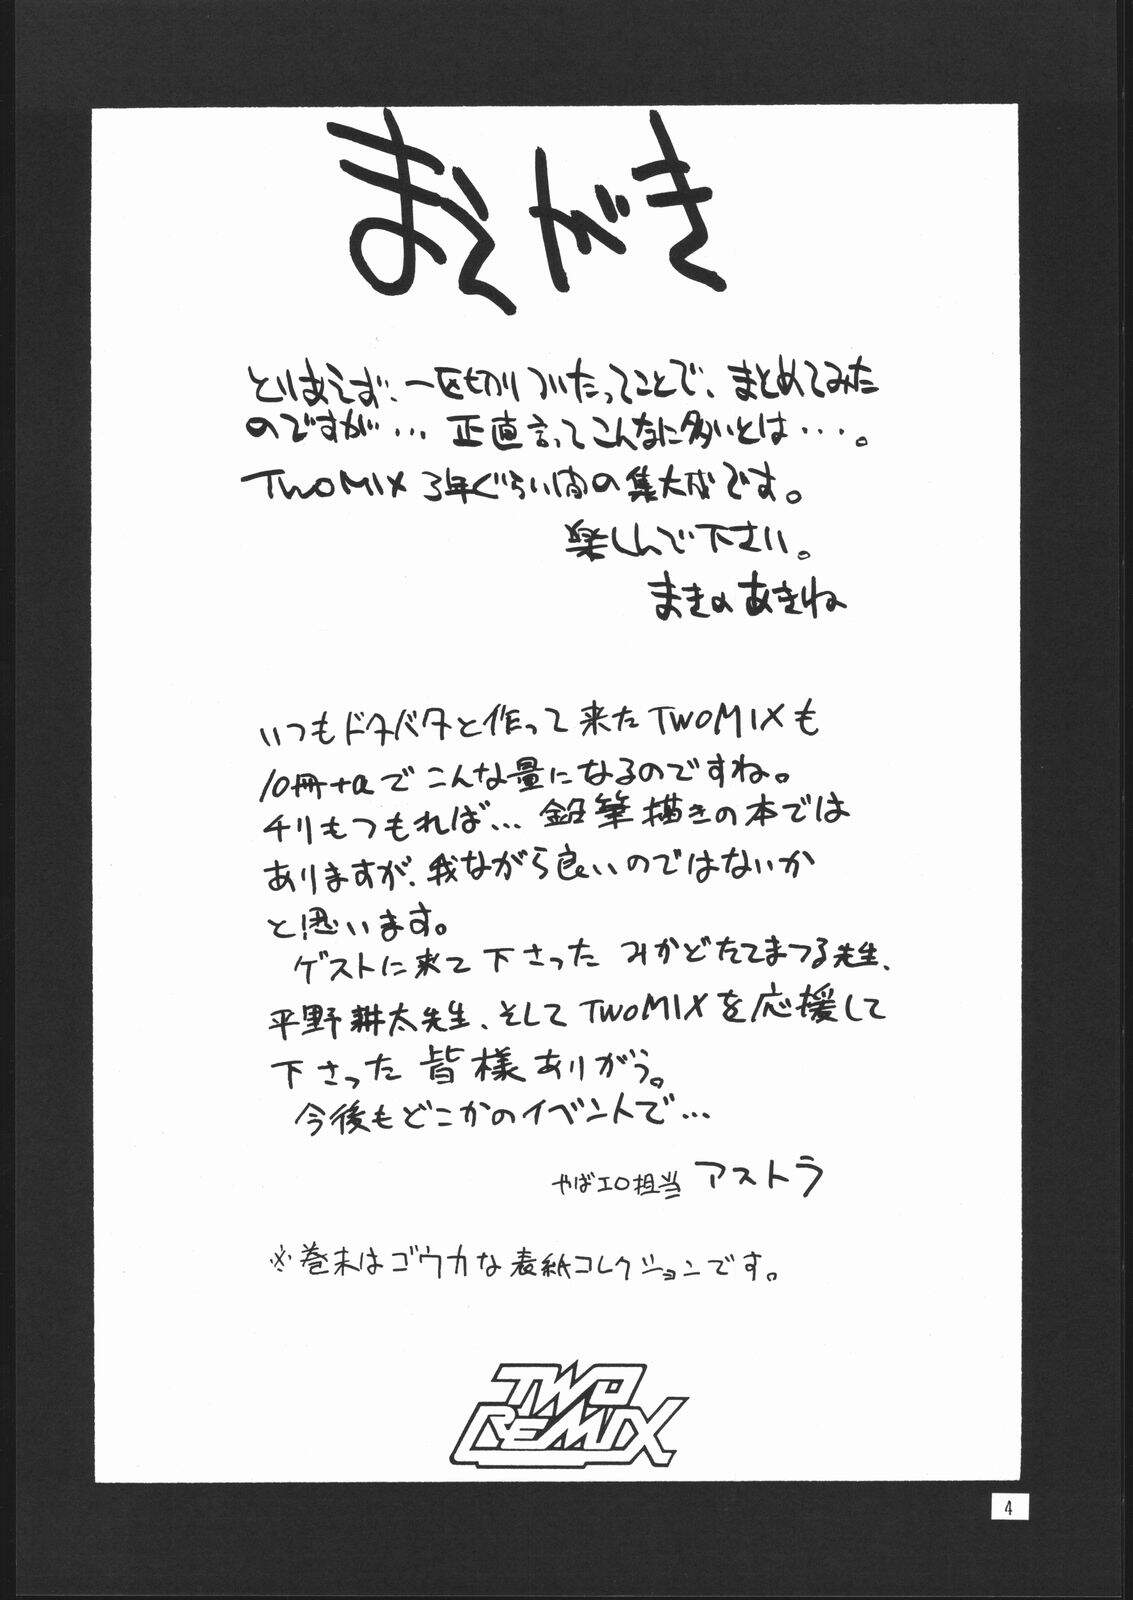 まえがき
とりあえず、一区切りついたってことで、まとめてみた
のですが… 正直言ってこんなに多いとは…。
TWOMIX 3年ぐらい間の集大成です。
楽しんで下さい。
まきのあきね
いつもドタバタと作って来たTWOMIXも
10冊+αでこんな量になるのですね。
チリもつもれば… 鉛筆描きの本では
ありますが、我ながら良いのではないか
と思います。
ゲストに来て下さった みかどたてまつる先生、
平野耕太先生、そしてTWOMIXを応援して
下さった皆様ありがう。
今後もどこかのイベントで…
やばエロ担当 アストラ
※巻末はゴウカな表紙コレクションです。
TWO
REMIX
4